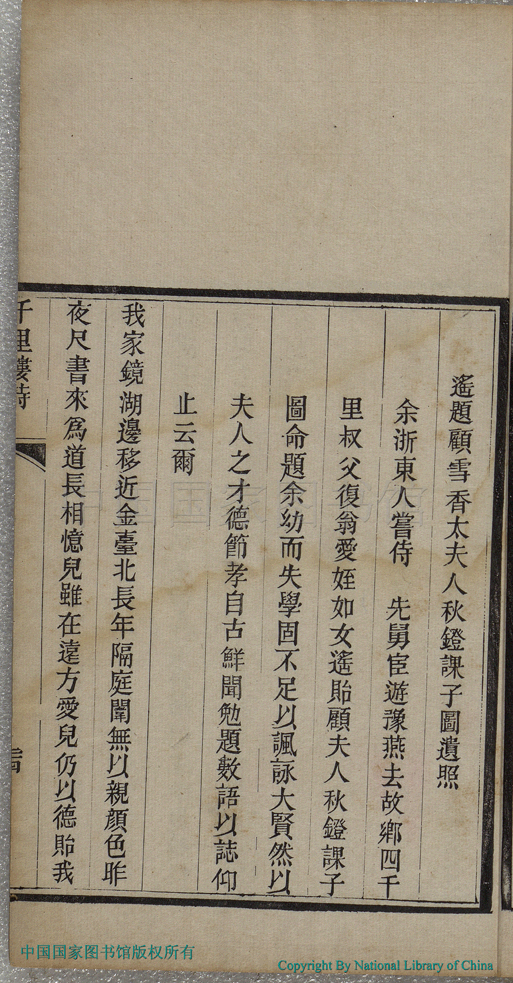 遙題顧雪香太夫人秋鐙課子圖遺照
余浙東人嘗侍　先舅宦遊豫燕去故鄉四千
里叔父復翁愛姪如女遙貽顧夫人秋鐙課子
圖命題余幼而失學固不足以諷詠大賢然以
夫人之才德節孝自古鮮聞勉題數語以誌仰
止云爾
我家鏡湖邊移近金臺北長年隔庭闈無以親顏色昨
夜尺書來爲道長相憶兒雖在遠方愛兒仍以德貽我
千里
中国国家图书馆版权所有
Copyright By National Library of China